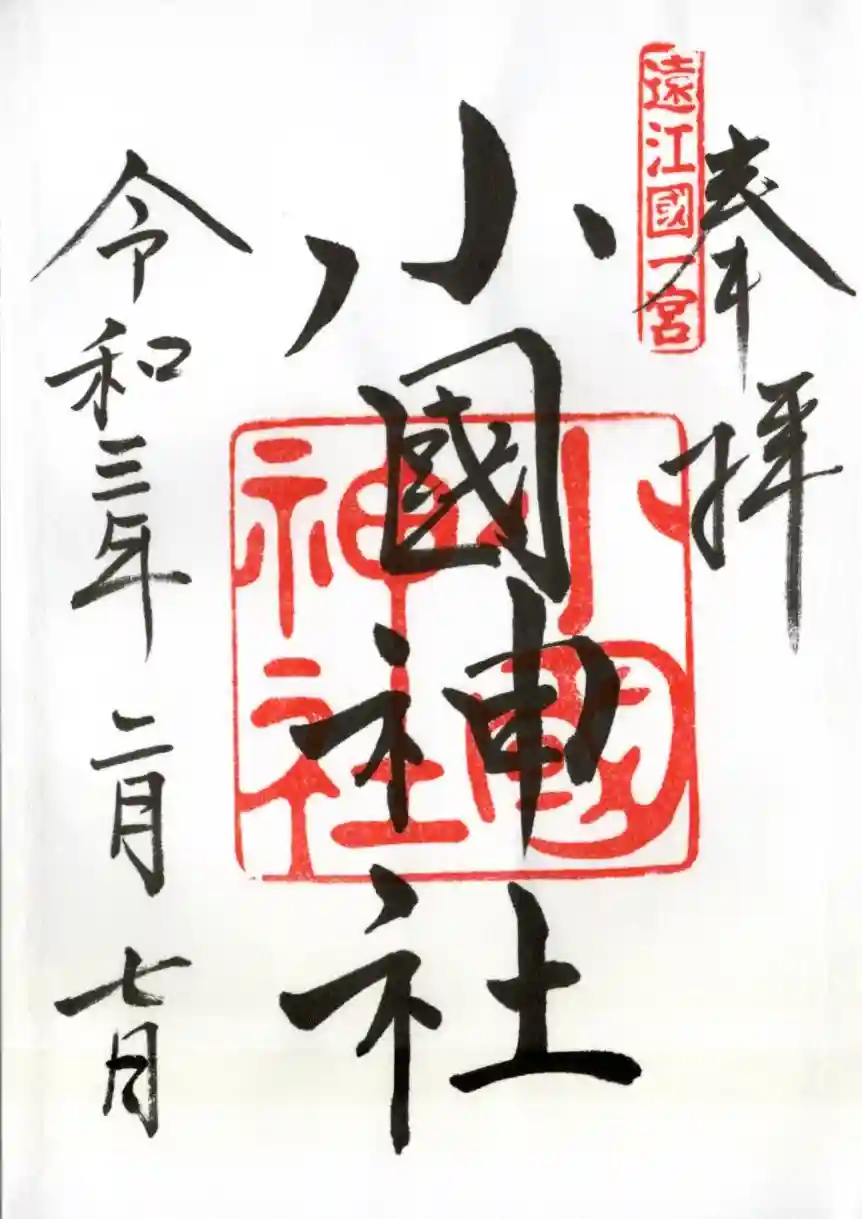 奉拝
遠江國一宮
小國神社
小國
神社
令和三年 二月 七日